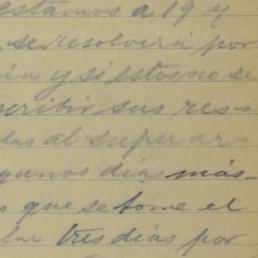 estamos a 19 y
se resolverá por
ia y si esto no se
cribir sus res-
das al superar
gunos dias más
o que se tome el
lar tres dias por